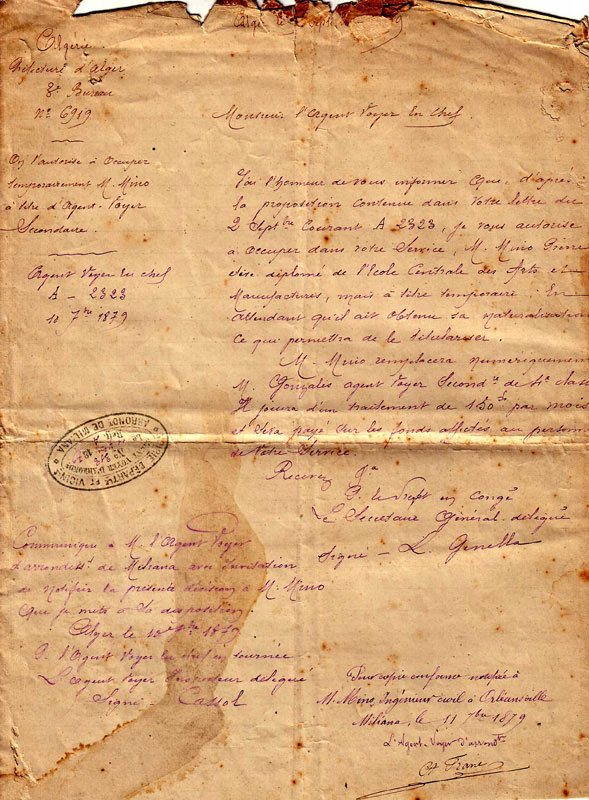 Algérie
Préfecture d'Alger
Bureau
N° 6919
On l'autorise à Occuper
temporairement M. Mino
à titre d'Agent-Voyer
Secondaire.
Agent Voyer En chef
A - 2323
10 7bre 1879
Monsieur l'Agent Voyer En Chef
J'ai l'honneur de vous informer que, d'après
la proposition contenue dans votre lettre du
2 Septbre Courant A 2323, je vous autorise
à Occuper dans votre Service, M. Mino
diplomé de l'Ecole Centrale des Arts et
Manufactures, mais à titre temporaire. En
attendant qu'il ait obtenu sa naturalisation
ce qui permettra de le titulariser.
M. Mino remplacera numériquement
M. Gonzalès agent Voyer Secondre de 4e classe
Il jouira d'un traitement de 150f par mois
et sera payé sur les fonds affectés au personnel
de Votre Service.
Recevez
P. le Préfet en Congé
Le Secrétaire Général délégué
Signé - L. Genella
Communiqué à M. l'Agent Voyer
d'arrondt de Miliana avec invitation
de notifier la présente décision à M. Mino
que je mets à sa disposition.
Alger le 10 7bre 1879
P. l'Agent Voyer En chef en tournée
L'Agent Voyer délégué
Signé - Cassol
Pour copie conforme notifiée à
M. Mino, Ingénieur civil à Orléansville
Miliana, le 11 7bre 1879
L'Agent-Voyer d'arrondt